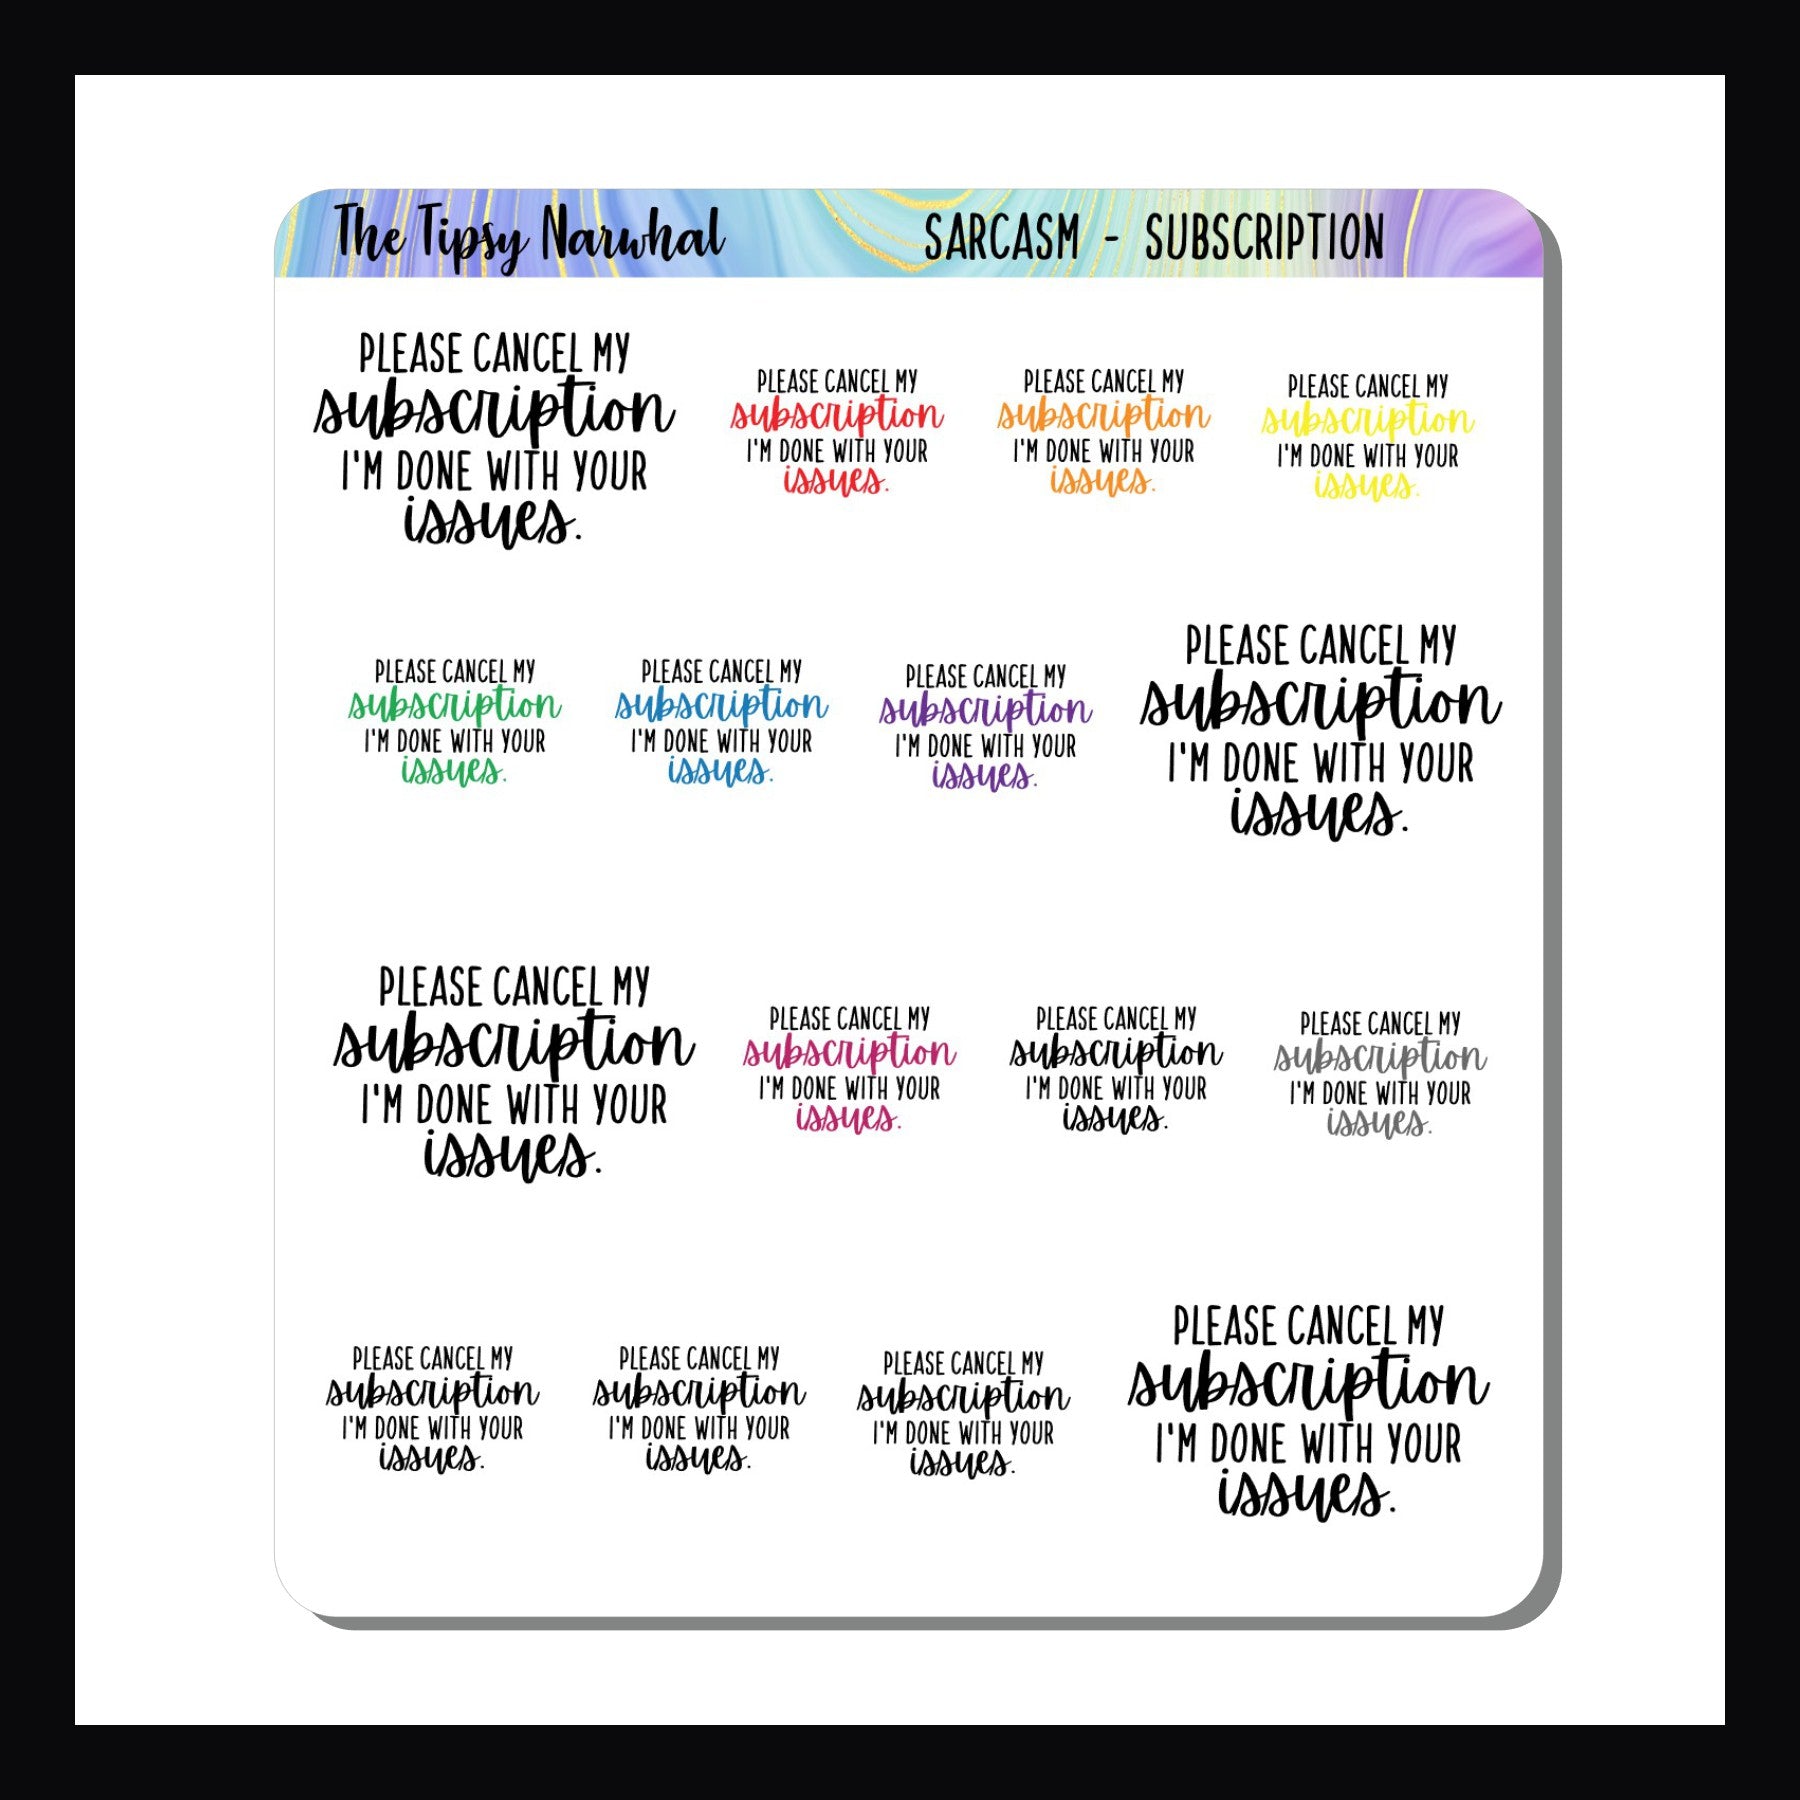 The Tipsy Narwhal
SARCASM - SUBSCRIPTION
PLEASE CANCEL MY
subscription
I'M DONE WITH YOUR
issues.
PLEASE CANCEL MY
subscription
I'M DONE WITH YOUR
issues.
PLEASE CANCEL MY
subscription
I'M DONE WITH YOUR
issues.
PLEASE CANCEL MY
subscription
I'M DONE WITH YOUR
issues.
PLEASE CANCEL MY
subscription
I'M DONE WITH YOUR
issues.
PLEASE CANCEL MY
subscription
I'M DONE WITH YOUR
issues.
PLEASE CANCEL MY
subscription
I'M DONE WITH YOUR
issues.
PLEASE CANCEL MY
subscription
I'M DONE WITH YOUR
issues.
PLEASE CANCEL MY
subscription
I'M DONE WITH YOUR
issues.
PLEASE CANCEL MY
subscription
I'M DONE WITH YOUR
issues.
PLEASE CANCEL MY
subscription
I'M DONE WITH YOUR
issues.
PLEASE CANCEL MY
subscription
I'M DONE WITH YOUR
issues.
PLEASE CANCEL MY
subscription
I'M DONE WITH YOUR
issues.
PLEASE CANCEL MY
subscription
I'M DONE WITH YOUR
issues.
PLEASE CANCEL MY
subscription
I'M DONE WITH YOUR
issues.
PLEASE CANCEL MY
subscription
I'M DONE WITH YOUR
issues.